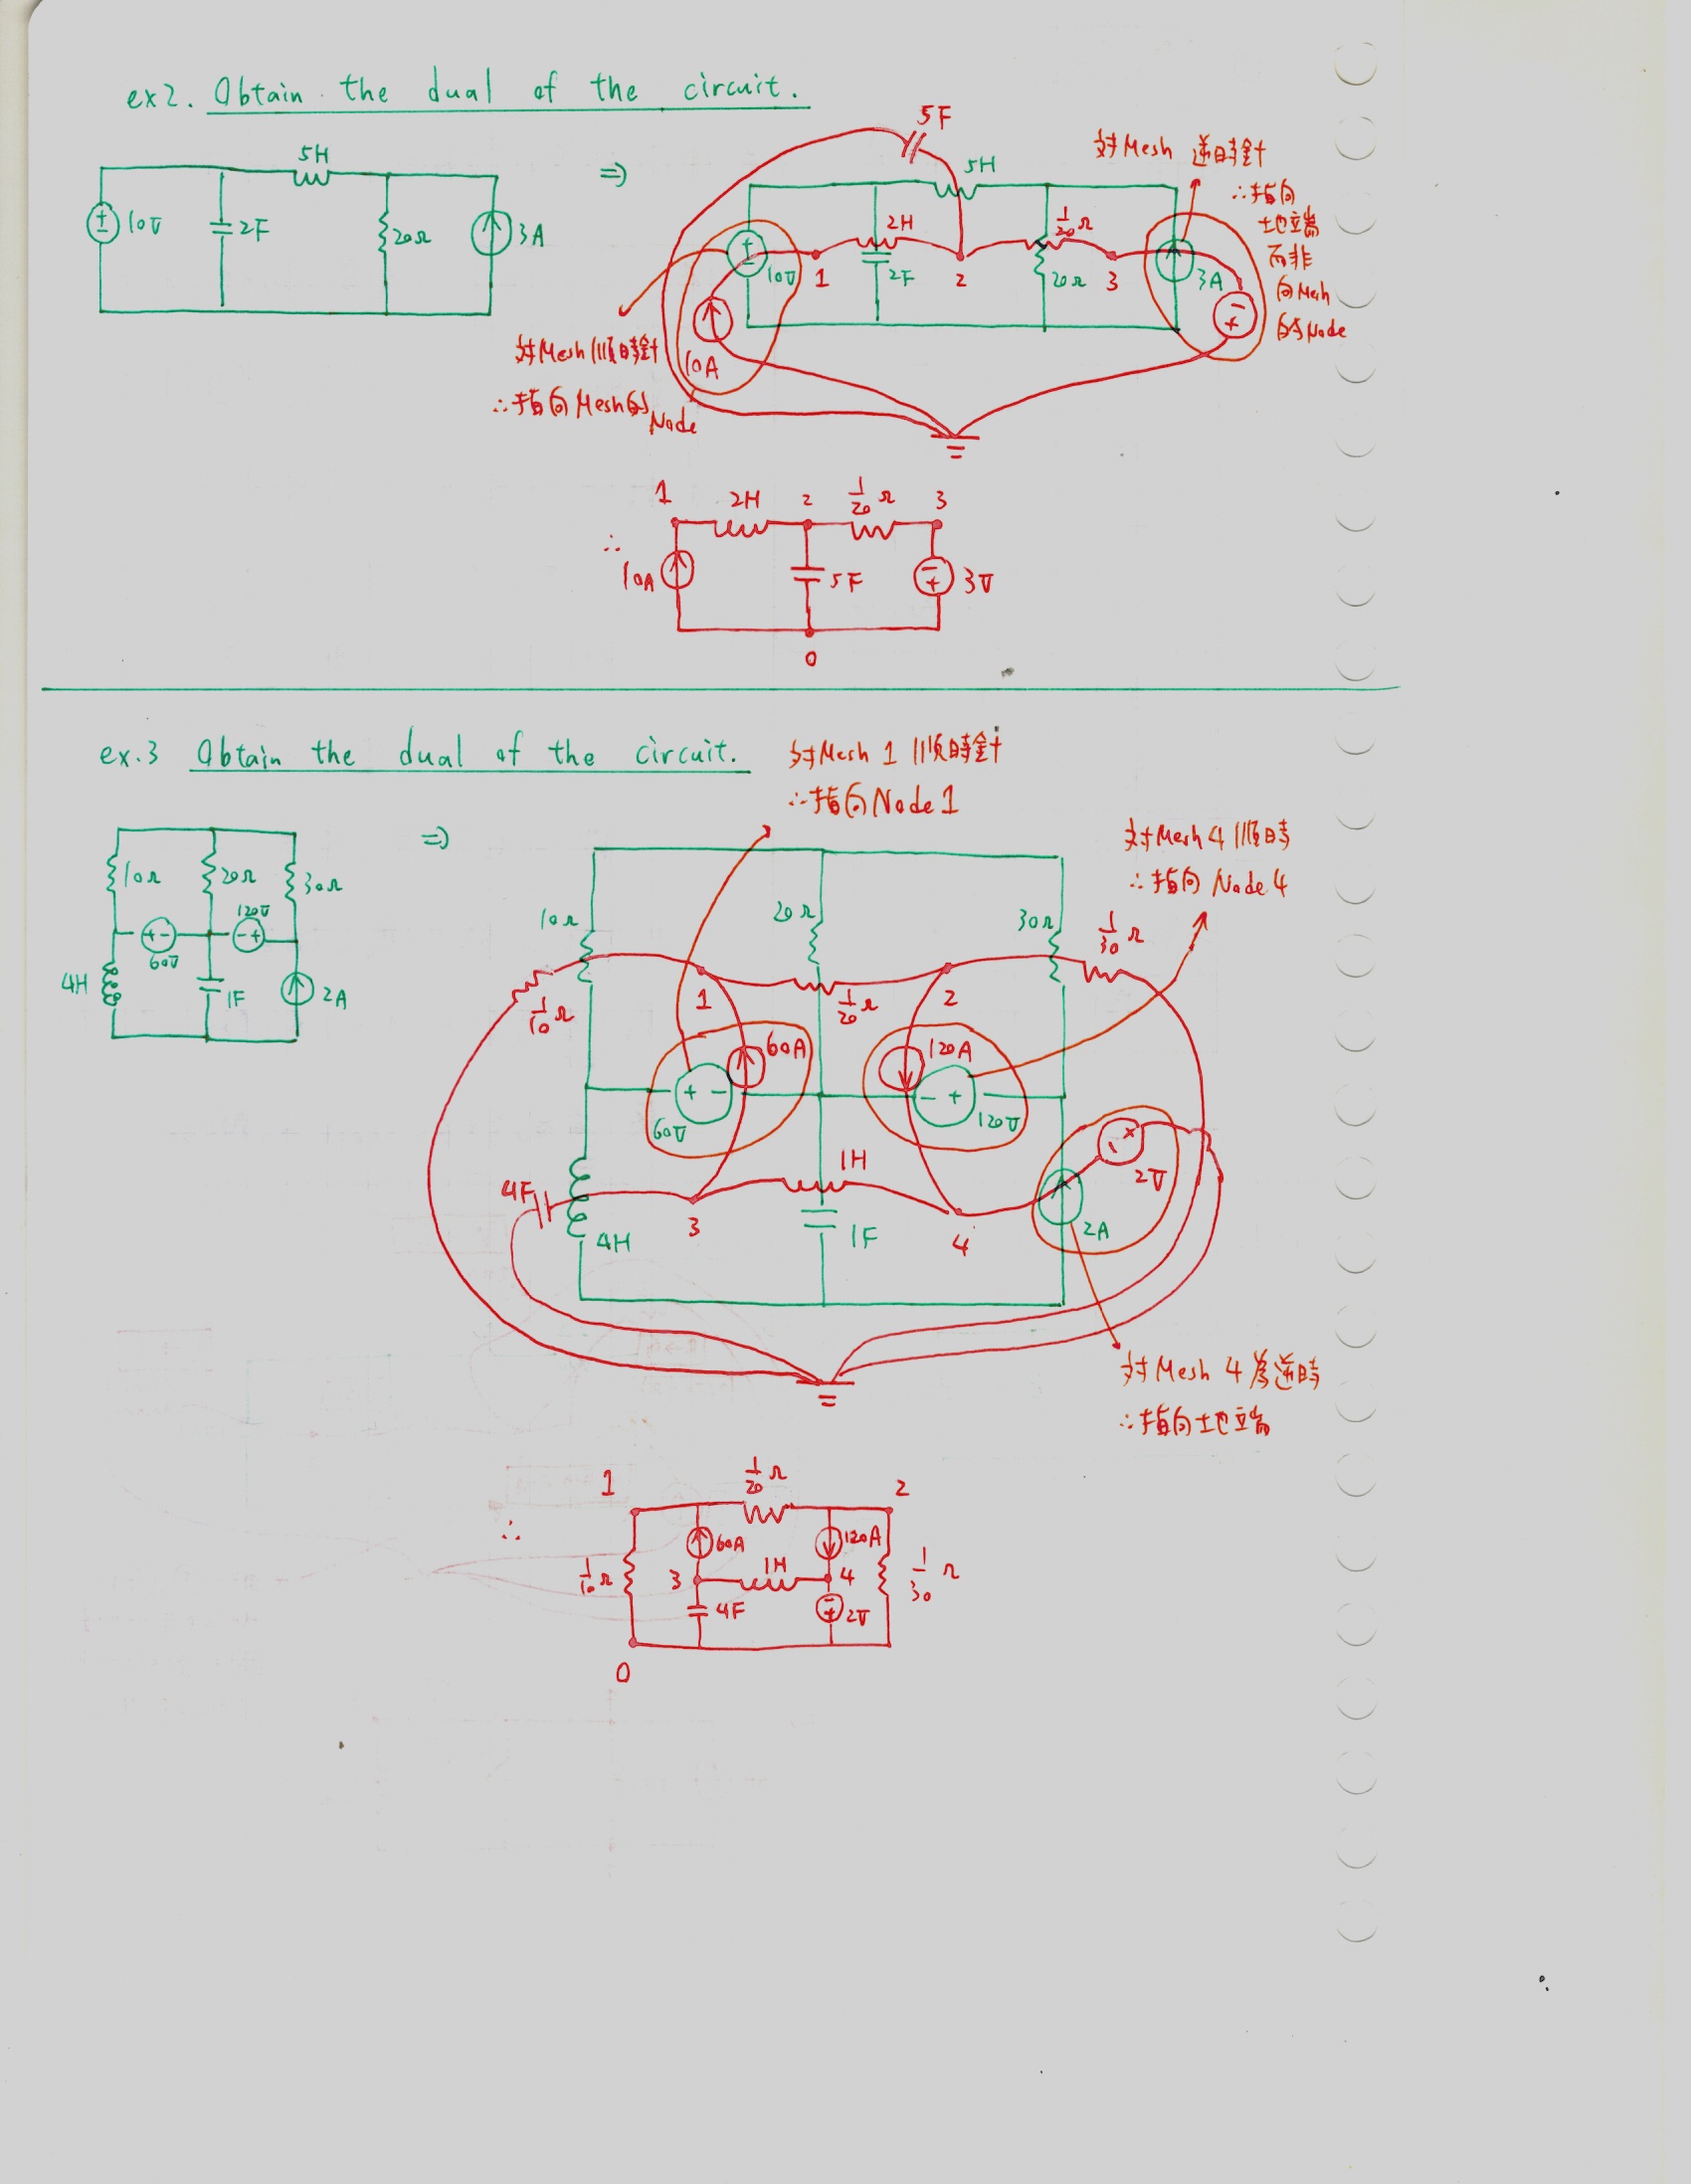 ex2. Obtain the dual of the circuit.
5H
10V
2F
20Ω
3A
⇒
5F
5H
2H
1/20 Ω
10V
1
2F
2
20Ω
3
3A
10A
対Mesh 逆時針
∴指向
地端
而非
向Mesh
的Node
対Mesh順時針
∴指向Mesh的Node
∴
1
2H
2
1/20 Ω
3
10A
5F
3V
0
ex.3 Obtain the dual of the circuit.
対Mesh 1 順時針
∴指向Node 1
10Ω
20Ω
30Ω
120V
60V
4H
1F
2A
⇒
対Mesh 4 順時
∴指向 Node 4
10Ω
20Ω
30Ω
1/30 Ω
1/10 Ω
1
1/20 Ω
2
60A
120A
+ −
− +
60V
120V
1H
2V
4F
3
4H
1F
4
2A
対Mesh 4 為逆時
∴指向地端
∴
1
1/20 Ω
2
60A
120A
1/10 Ω
3
1H
4
1/30 Ω
4F
2V
0